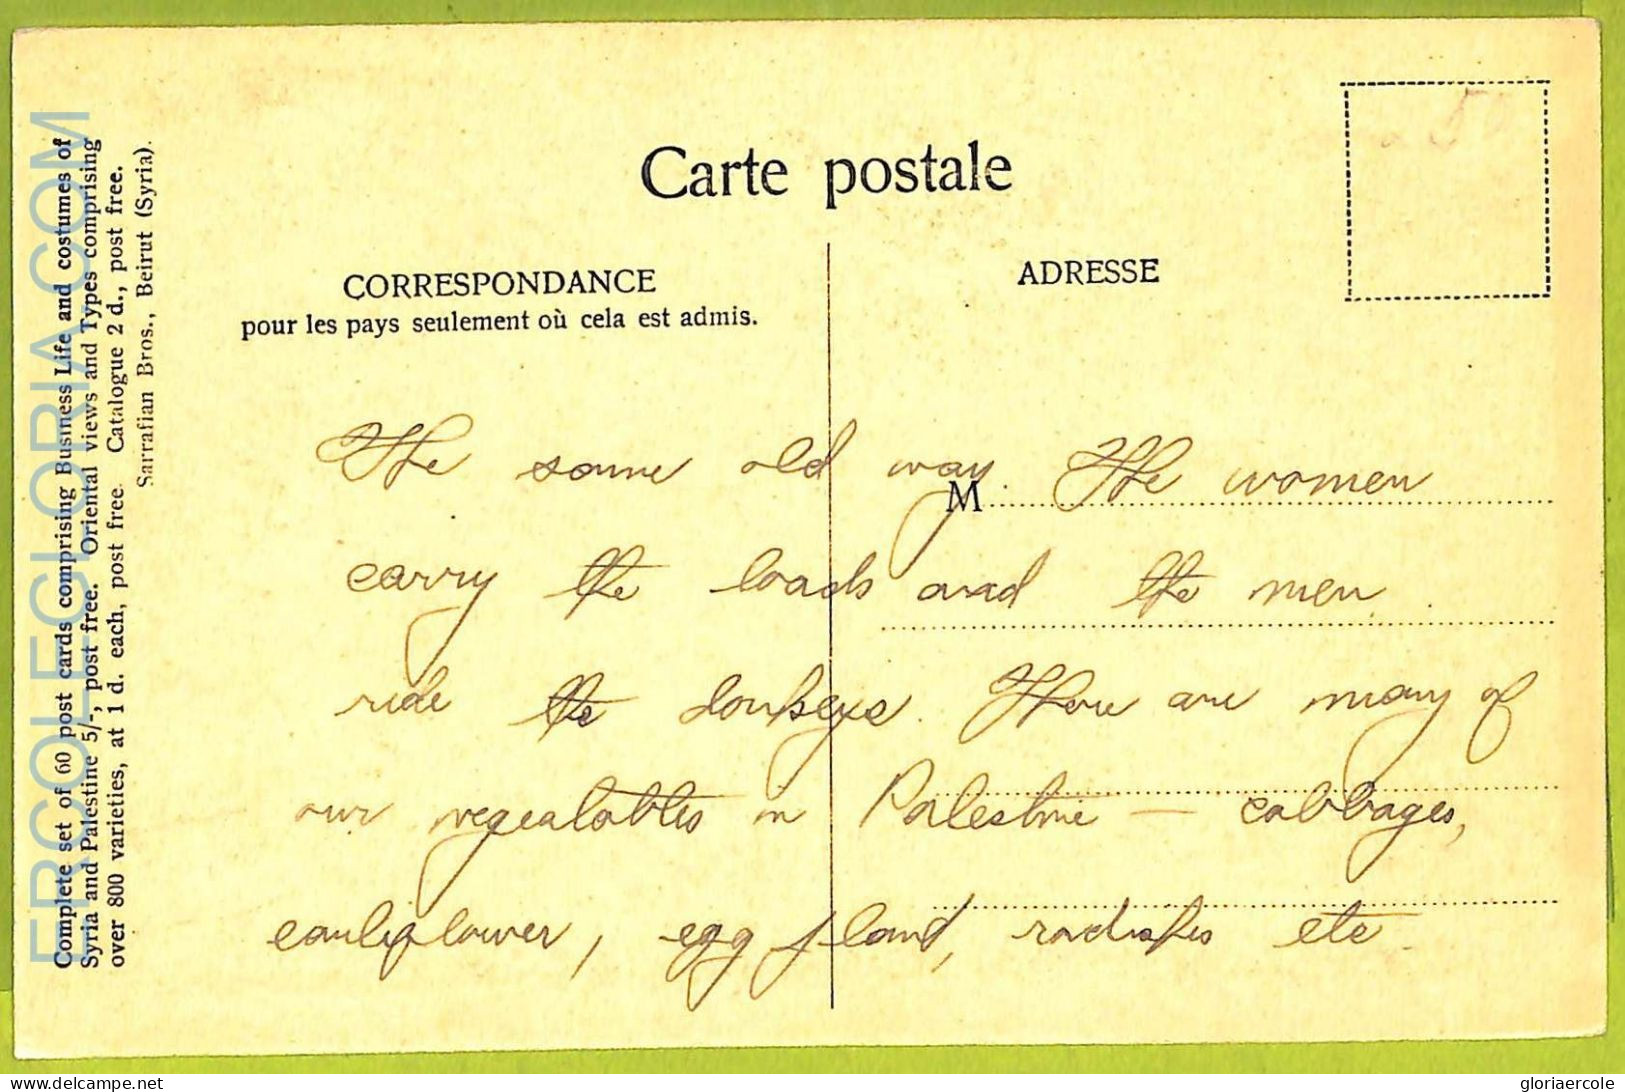 Carte postale
CORRESPONDANCE
pour les pays seulement où cela est admis.
ADRESSE
M
The same old way. The women
carry the loads and the men
ride the donkeys. There are many of
our vegeatables in Palestine — cabbages,
cauliflower, egg plant, radishes etc.
Complete set of 60 post cards comprising Business Life and costumes of
Syria and Palestine 5/-, post free. Oriental views and Types comprising
over 800 varieties, at 1 d. each, post free. Catalogue 2 d., post free.
Sarrafian Bros., Beirut (Syria).
ERCOLEGLORIA.COM
www.delcampe.net
gloriaercole